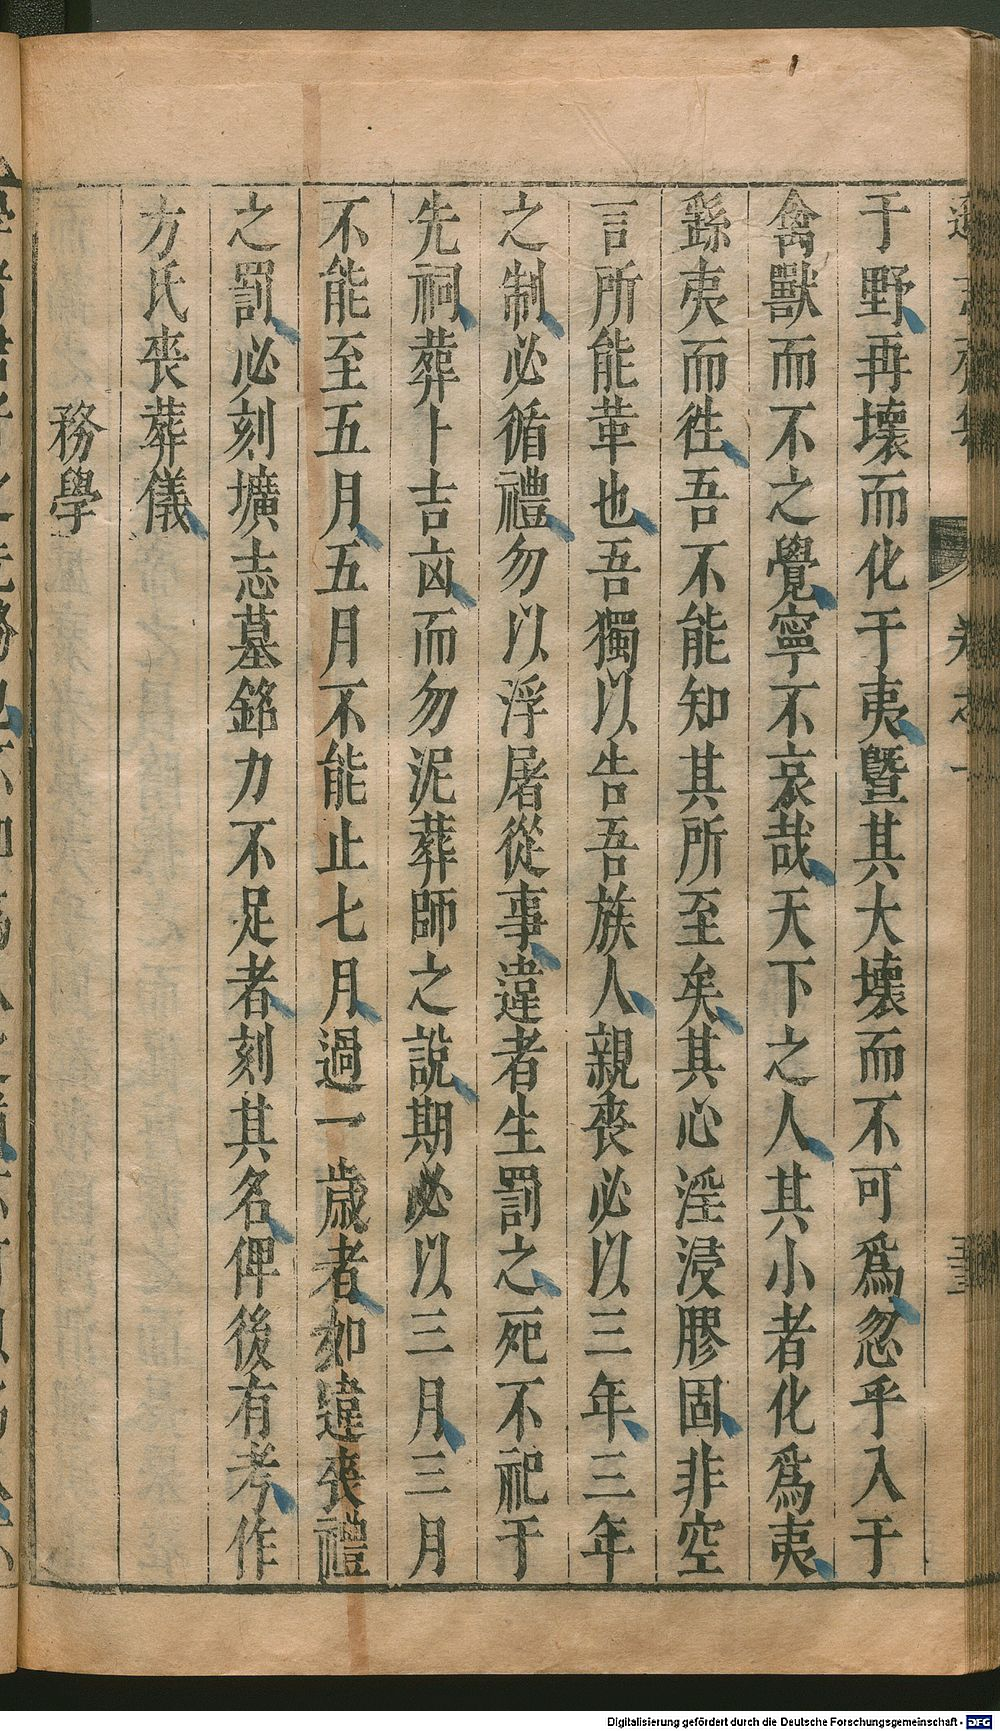 于野再壞而化于夷曁其大壞而不可爲忽乎入于
禽獸而不之覺寧不哀哉天下之人其小者化爲夷
繇夷而徃吾不能知其所至矣其心淫浸膠固非空
言所能革也吾獨以告吾族人親喪必以三年三年
之制必循禮勿以浮屠從事違者生罰之死不祀于
先祠葬卜吉凶而勿泥葬師之說期必以三月三月
不能至五月五月不能止七月過一歲者如違喪禮
之罰必刻壙志墓銘力不足者刻其名俾後有考作
方氏喪葬儀
務學
Digitalisierung gefördert durch die Deutsche Forschungsgemeinschaft - DFG